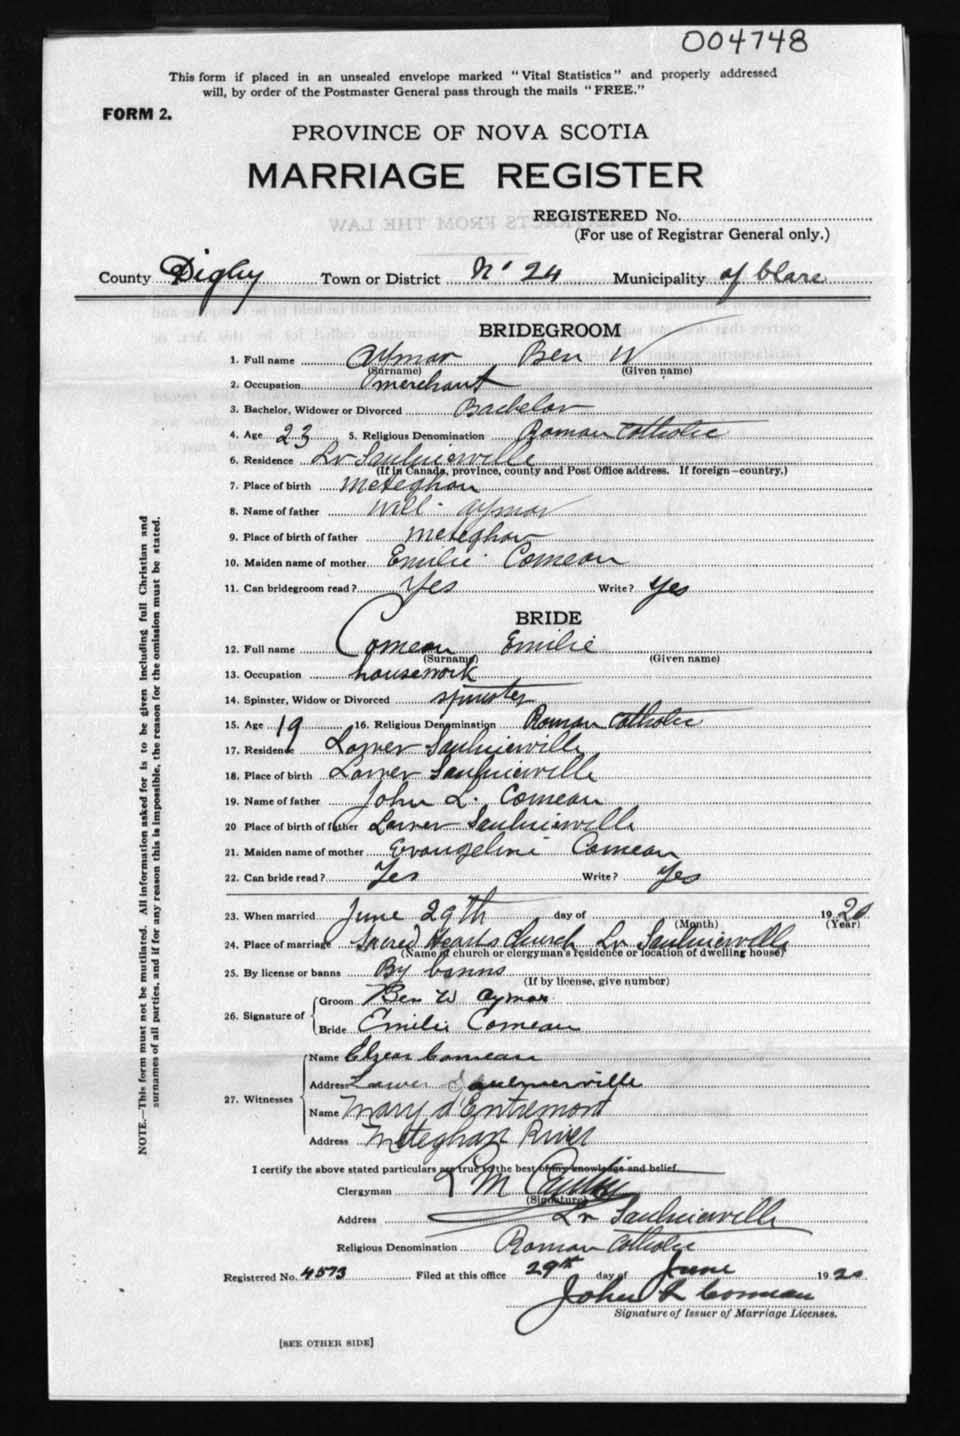 004748
This form if placed in an unsealed envelope marked "Vital Statistics" and properly addressed
will, by order of the Postmaster General pass through the mails "FREE."
FORM 2.
PROVINCE OF NOVA SCOTIA
MARRIAGE REGISTER
REGISTERED No.
(For use of Registrar General only.)
County Digby Town or District No 24 Municipality of Clare
BRIDEGROOM
1. Full name Aymar Ben W
(Surname) (Given name)
2. Occupation merchant
3. Bachelor, Widower or Divorced Bachelor
4. Age 23 5. Religious Denomination Roman Catholic
6. Residence Lr Saulnierville
(If in Canada, province, county and Post Office address. If foreign—country.)
7. Place of birth Meteghan
8. Name of father Will. Aymar
9. Place of birth of father Meteghan
10. Maiden name of mother Emilie Comeau
11. Can bridegroom read? Yes Write? Yes
BRIDE
12. Full name Comeau Emilie
(Surname) (Given name)
13. Occupation housework
14. Spinster, Widow or Divorced spinster
15. Age 19 16. Religious Denomination Roman Catholic
17. Residence Lower Saulnierville
18. Place of birth Lower Saulnierville
19. Name of father John L. Comeau
20 Place of birth of father Lower Saulnierville
21. Maiden name of mother Evangeline Comeau
22. Can bride read? Yes Write? Yes
23. When married June 29th day of 1920
(Month) (Year)
24. Place of marriage Sacred Hearts Church Lr Saulnierville
(Name of church or clergyman's residence or location of dwelling house)
25. By license or banns By banns
(If by license, give number)
26. Signature of Groom Ben W Aymar
Bride Emilie Comeau
27. Witnesses Name Elzear Comeau
Address Lower Saulnierville
Name Mary d'Entremont
Address Meteghan River
I certify the above stated particulars are true to the best of my knowledge and belief.
Clergyman L M
(Signature)
Address Lr Saulnierville
Religious Denomination Roman Catholic
Registered No. 4573 Filed at this office 29th day of June 1920
John L Comeau
Signature of Issuer of Marriage Licenses.
[SEE OTHER SIDE]
NOTE.—This form must not be mutilated. All information asked for is to be given including full Christian and
surnames of all parties, and if for any reason this is impossible, the reason for the omission must be stated.